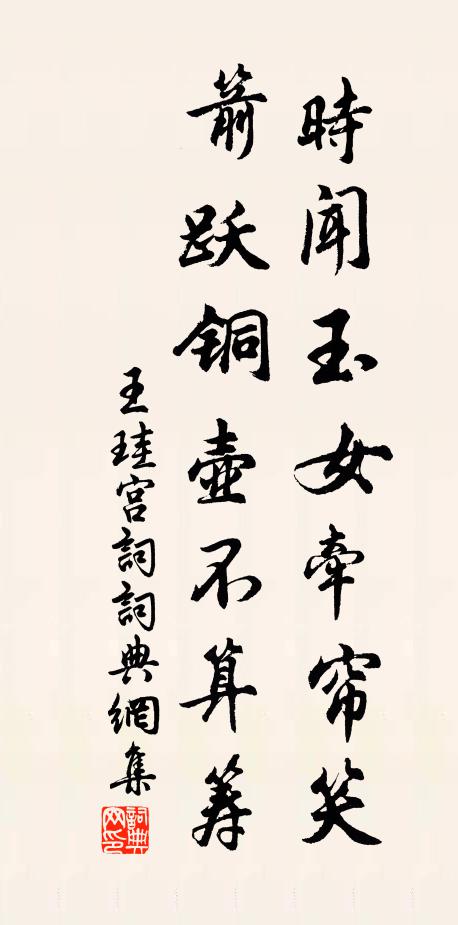 時闻玉女牵帘笑
箭跃铜壶不算筹
王珪宫詞詞典網集
詞典网印